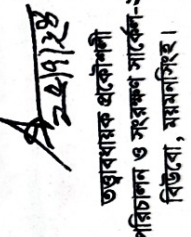 ২৫/৭/২৪
তত্ত্বাবধায়ক প্রকৌশলী
পরিচালন ও সংরক্ষণ সার্কেল-
বিউবো, ময়মনসিংহ।